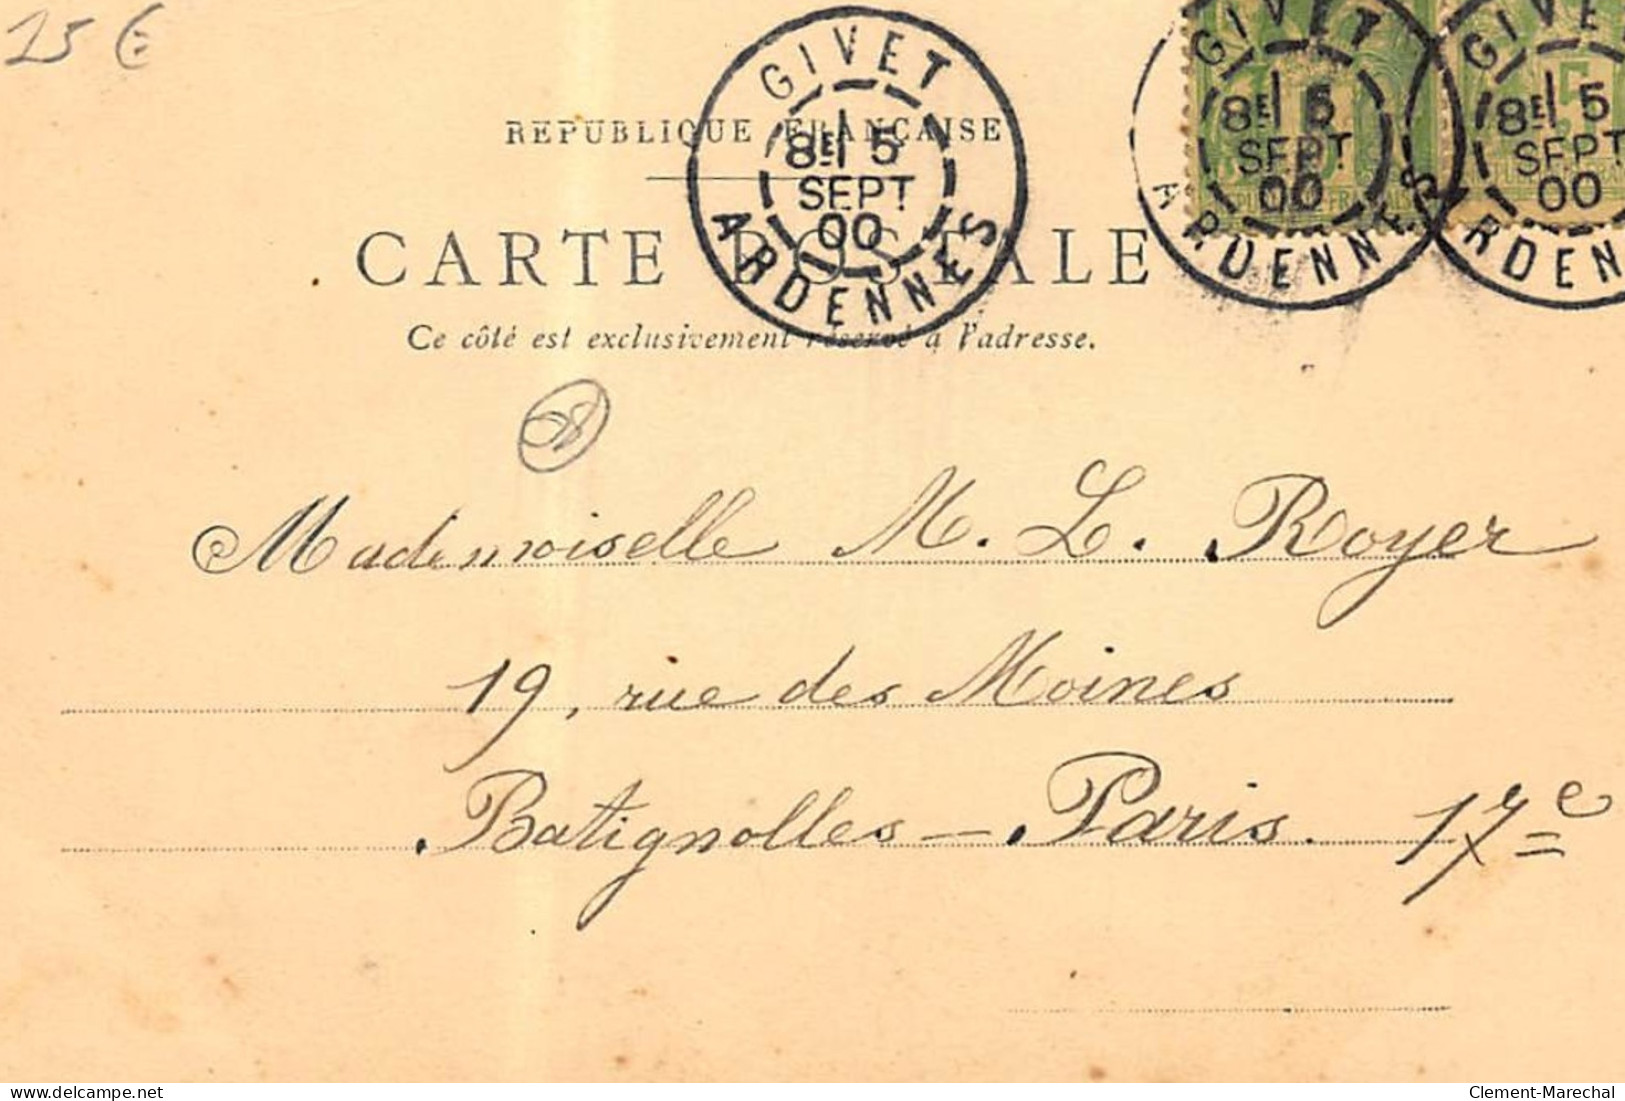 15 €
GIVET
8E 5
SEPT
00
ARDENNES
GIVET
8E 5
SEPT
00
ARDENNES
GIVET
8E 5
SEPT
00
ARDENNES
REPUBLIQUE FRANÇAISE
CARTE POSTALE
Ce côté est exclusivement réservé à l'adresse.
Mademoiselle M. L. Royer
19, rue des Moines
Batignolles - Paris. 17e
delcampe.net
Clement-Marechal